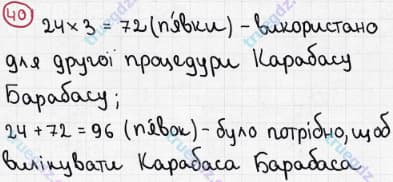 40
24 × 3 = 72 (п'явки) - використано
для другої процедури Карабасу
Барабасу;
24 + 72 = 96 (п'явок) - було потрібно, щоб
вилікувати Карабаса Барабаса